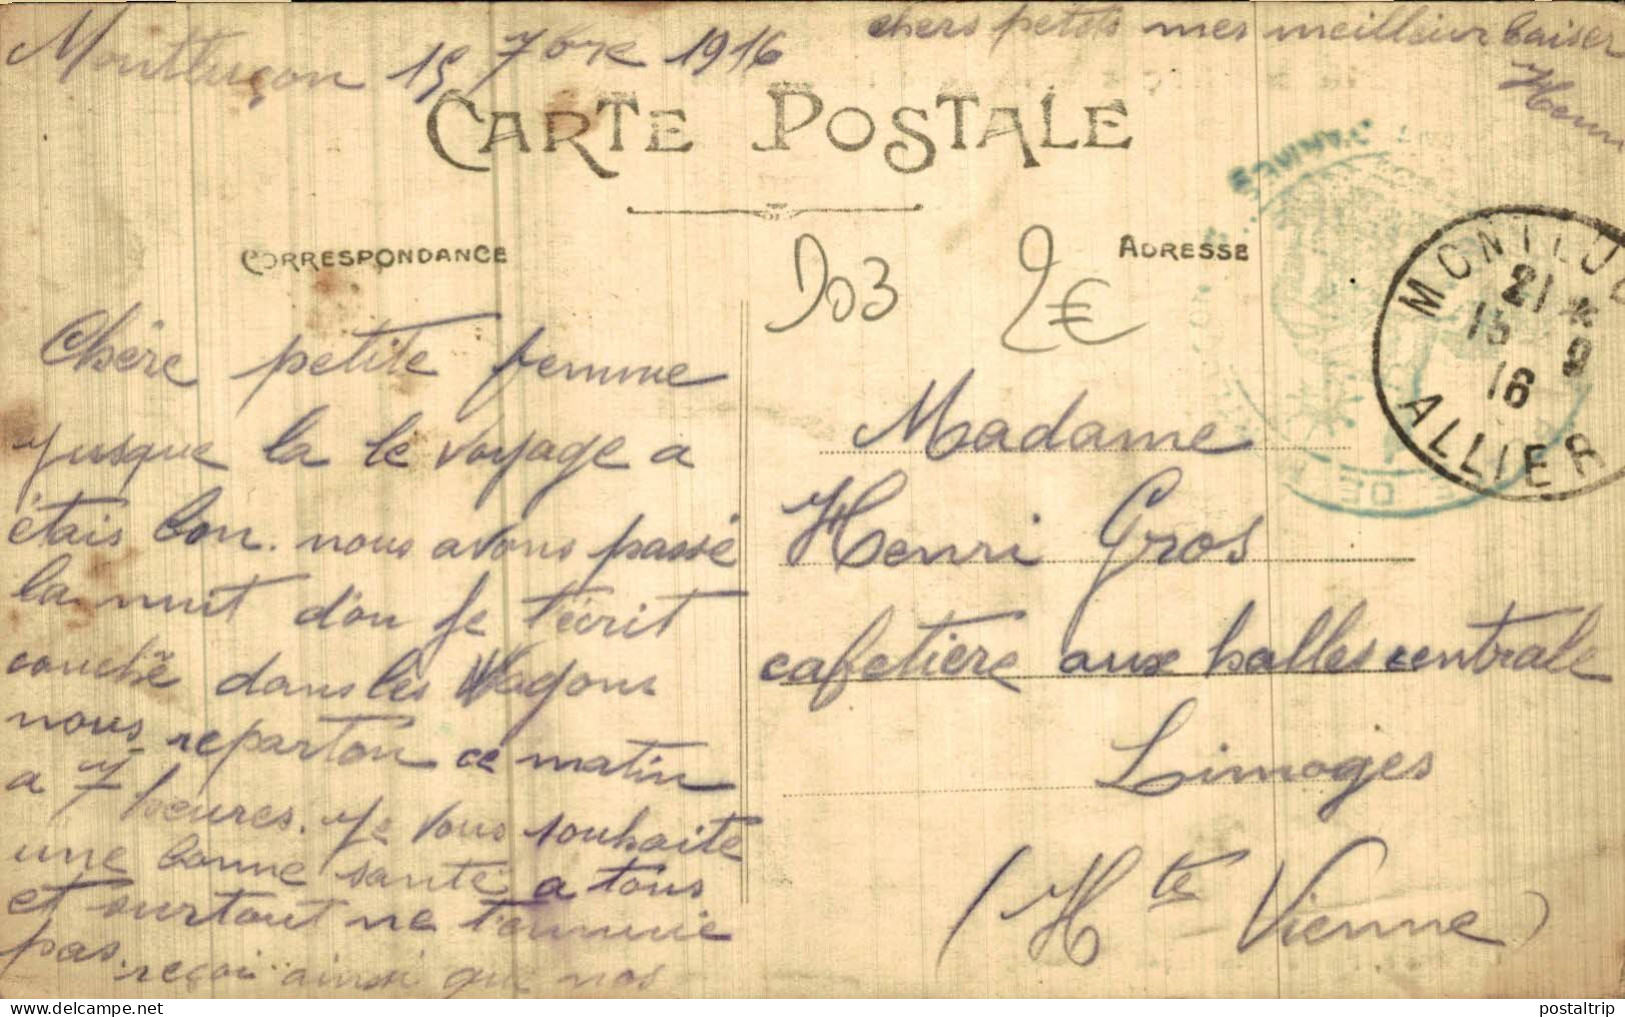 Montluçon 15 7bre 1916
CARTE POSTALE
CORRESPONDANCE
ADRESSE
D03 2€
MONTLUÇ
21 *
15 9
16
ALLIER
Chère petite femme
jusque la le voyage a
étais bon. nous avons passé
la nuit d'ou je t'écrit
couché dans les Wagons
nous reparton ce matin
a 7 heures. Je vous souhaite
une bonne santé a tous
et surtout ne t'ennuie
pas. reçoi ainsi que nos
chers petits mes meilleur baiser
Henri
Madame
Henri Gros
cafetière aux halles centrale
Limoges
(Hte Vienne)
postaltrip